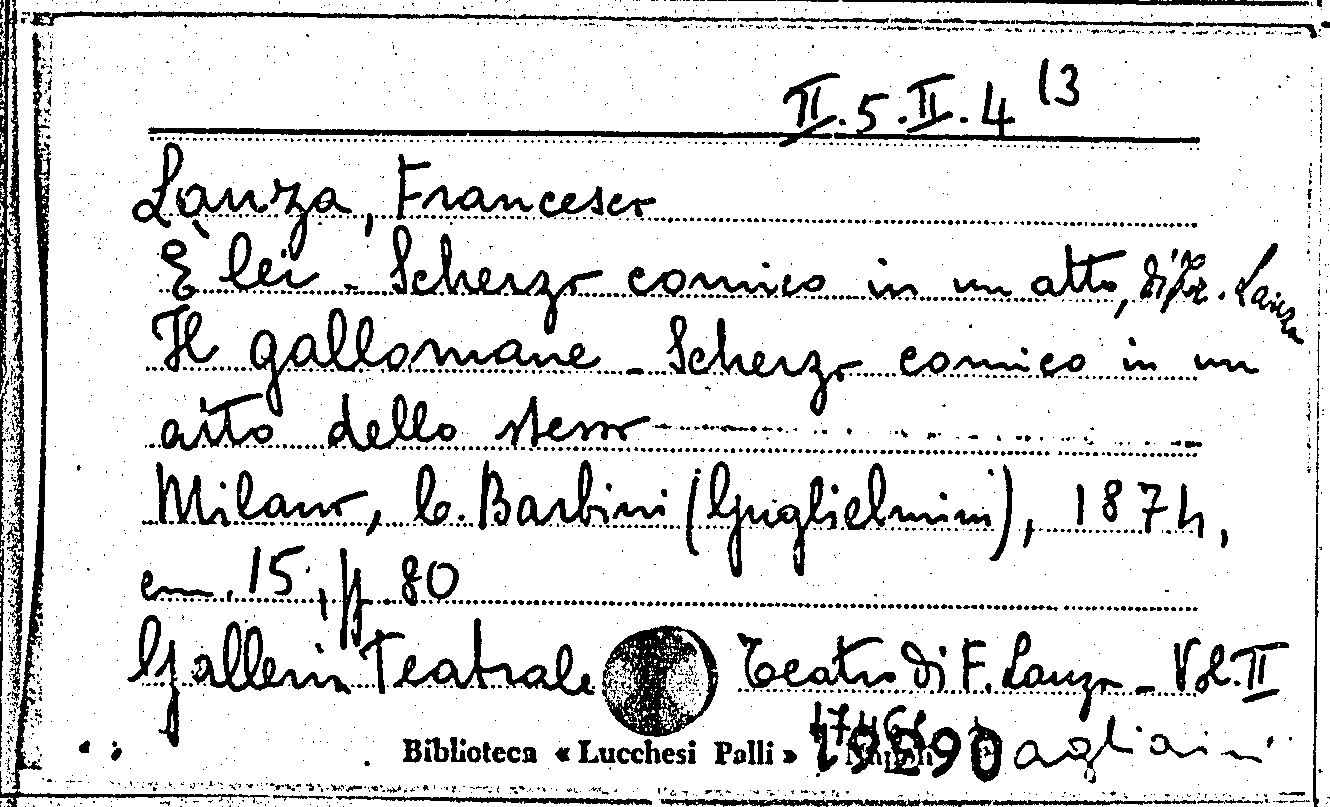 II.5.II.4 13
Lanza, Francesco
È lei - Scherzo comico in un atto, di Fr. Lanza
Il gallomane - Scherzo comico in un
atto dello stesso
Milano, C. Barbini (Guglielmini), 1874,
cm. 15; pp. 80
Galleria Teatrale Teatro di F. Lanza - Vol. II
Biblioteca « Lucchesi Palli »